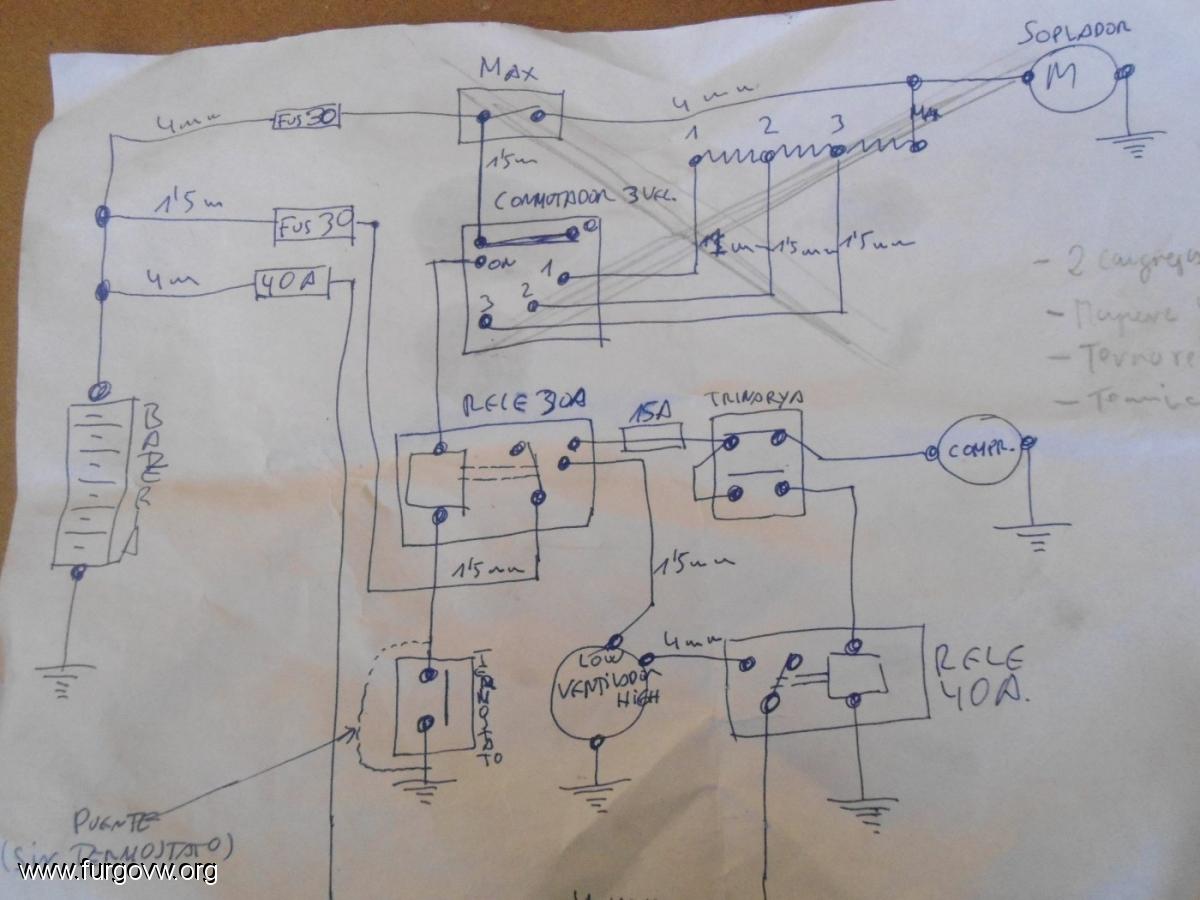 SOPLADOR
MAX
M
4mm
FUS 30
4mm
MAX
1 2 3
1'5m
1'5 m
FUS 30
CONMUTADOR 3 VEL.
0
ON
1
2
3
1'5mm
1'5mm
4m
40A
- 2
-
-
-
BATERIA
RELE 30A
15A
TRINARYA
COMPR.
1'5mm
1'5mm
LOW
VENTILADOR
HIGH
4mm
RELE
40A.
TERMOSTATO
PUENTE
(SIN TERMOSTATO)
www.furgovw.org